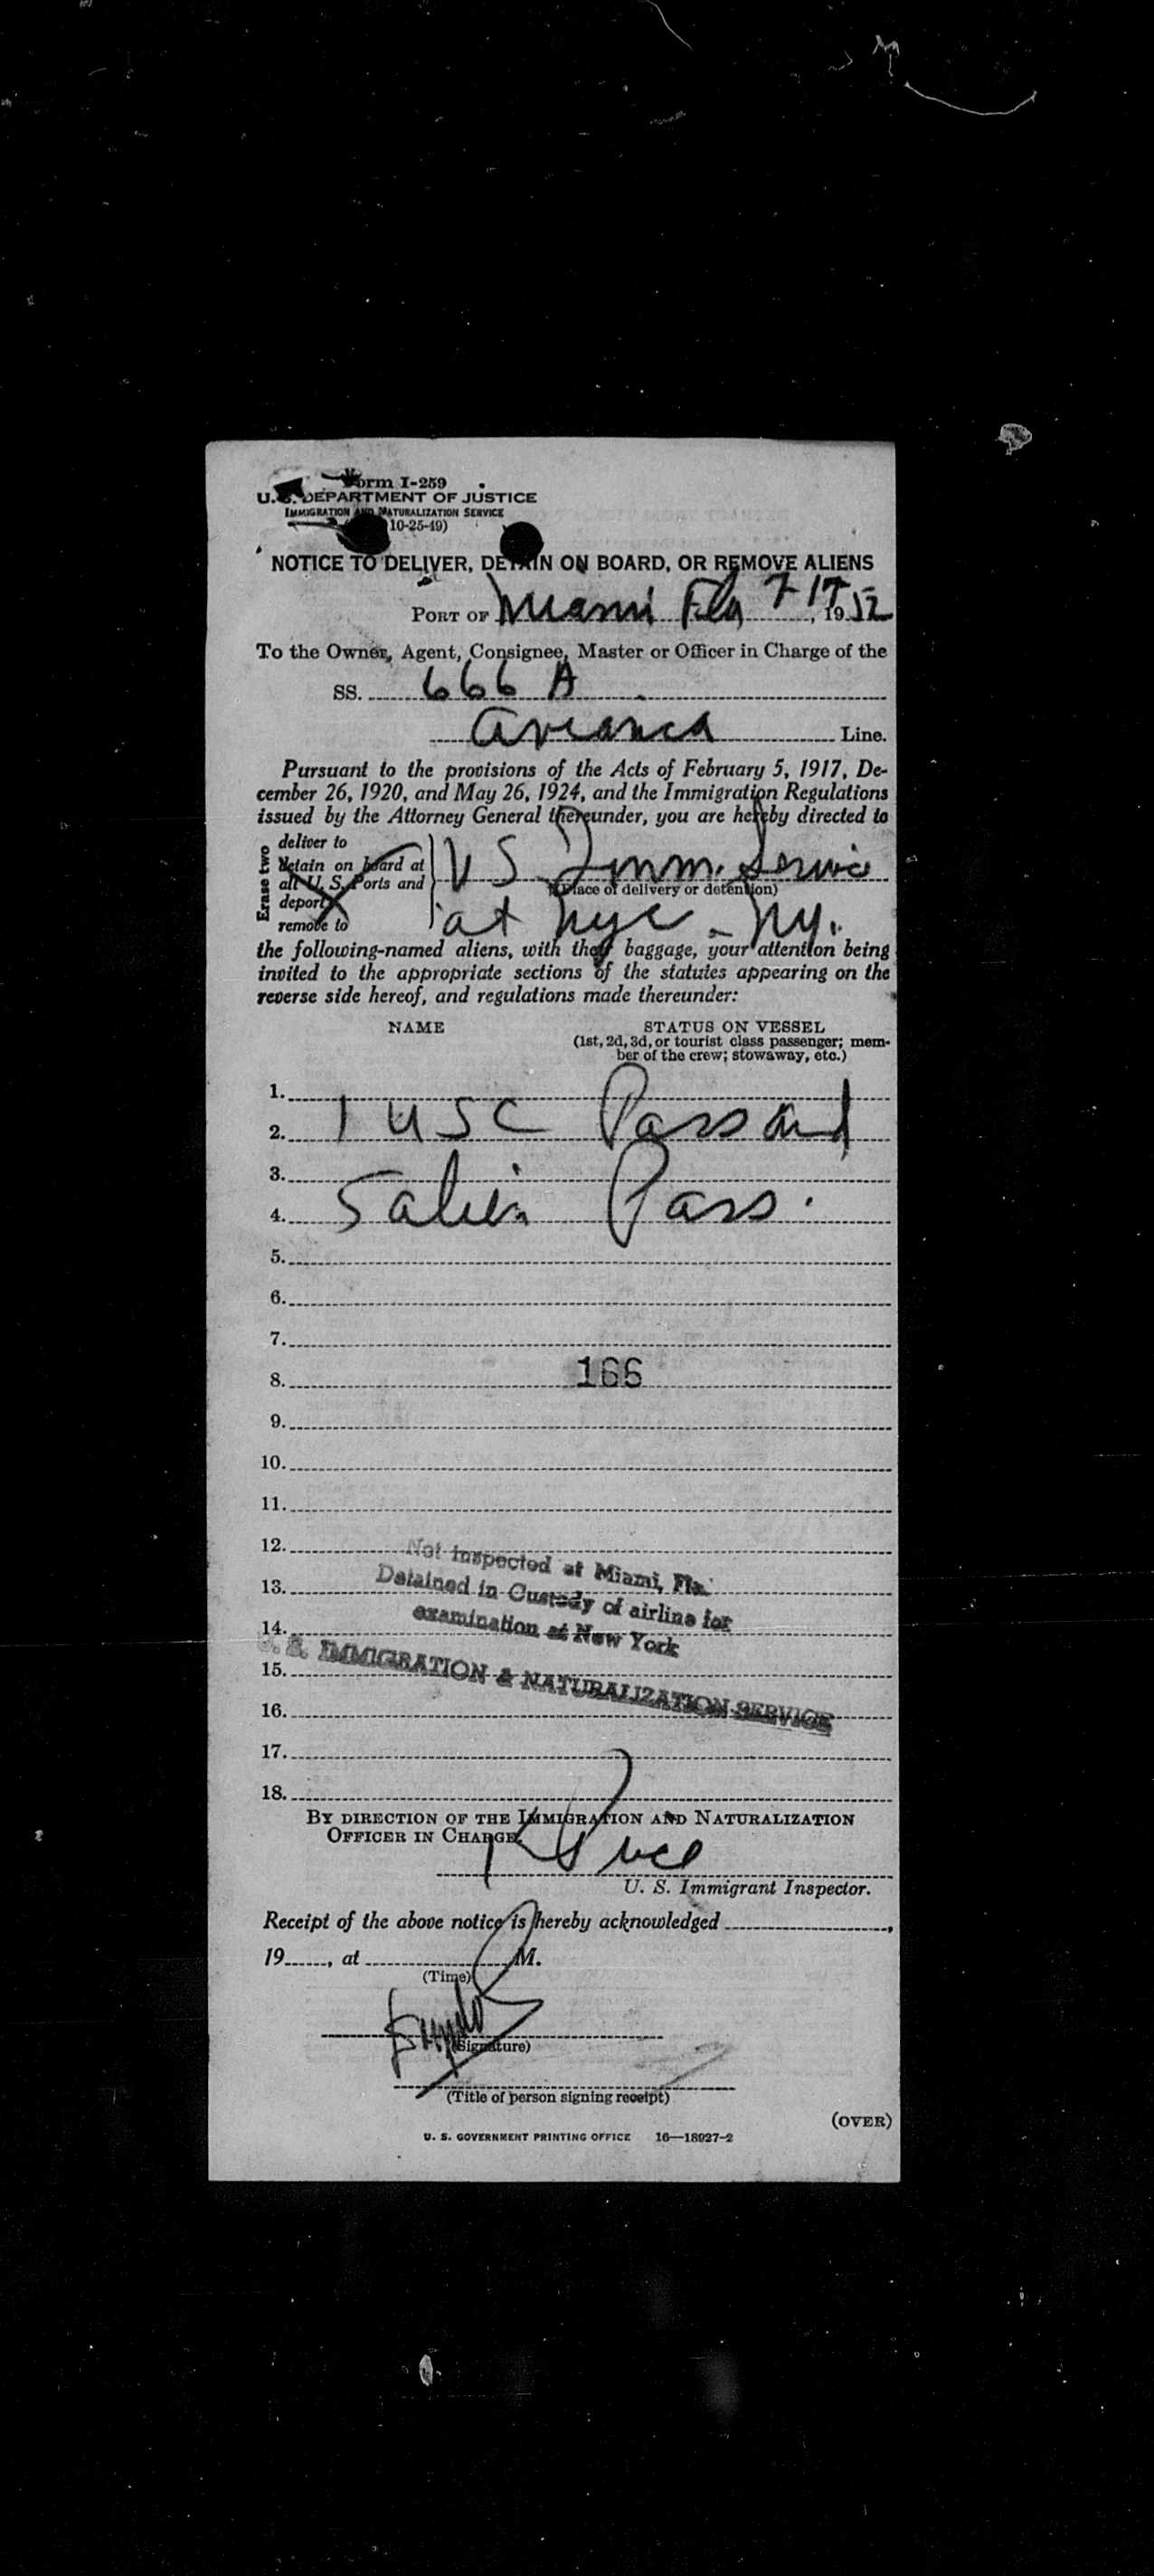 Form I-259
U.S. DEPARTMENT OF JUSTICE
IMMIGRATION AND NATURALIZATION SERVICE
10-25-49)
NOTICE TO DELIVER, DETAIN ON BOARD, OR REMOVE ALIENS
PORT OF Miami Fla 7-17, 1952
To the Owner, Agent, Consignee, Master or Officer in Charge of the
SS. 666 A
Avianca Line.
Pursuant to the provisions of the Acts of February 5, 1917, De-
cember 26, 1920, and May 26, 1924, and the Immigration Regulations
issued by the Attorney General thereunder, you are hereby directed to
Erase two
deliver to
detain on board at
all U. S. Ports and
deport
remove to
US Imm. Service
(Place of delivery or detention)
at NYC - NY.
the following-named aliens, with their baggage, your attention being
invited to the appropriate sections of the statutes appearing on the
reverse side hereof, and regulations made thereunder:
NAME STATUS ON VESSEL
(1st, 2d, 3d, or tourist class passenger; mem-
ber of the crew; stowaway, etc.)
1.
2. 1 USC Pass and
3.
4. 5 alien Pass.
5.
6.
7.
8. 166
9.
10.
11.
12. Not inspected at Miami, Fla.
13. Detained in Custody of airline for
14. examination at New York
15. U. S. IMMIGRATION & NATURALIZATION SERVICE
16.
17.
18.
BY DIRECTION OF THE IMMIGRATION AND NATURALIZATION
OFFICER IN CHARGE.
U. S. Immigrant Inspector.
Receipt of the above notice is hereby acknowledged ,
19 , at M.
(Time)
(Signature)
(Title of person signing receipt)
(OVER)
U. S. GOVERNMENT PRINTING OFFICE 16—18927-2